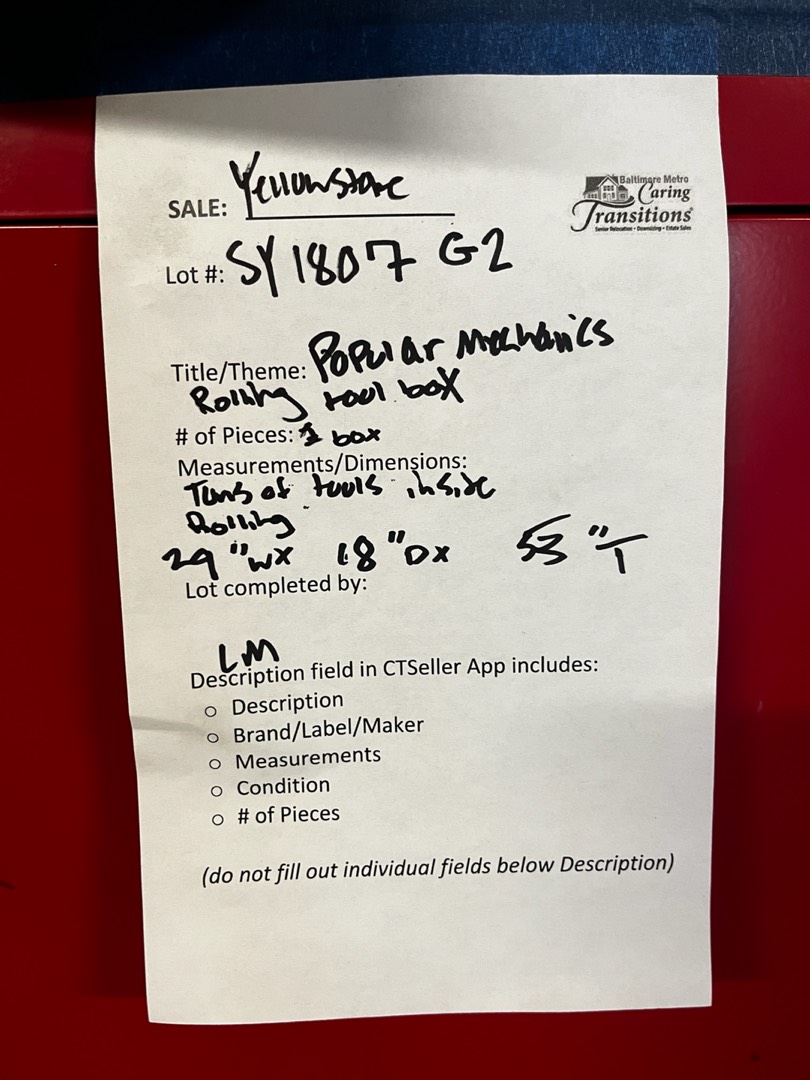 SALE: Yellowstone
Baltimore Metro
Caring
Transitions®
Senior Relocation • Downsizing • Estate Sales
Lot #: SY1807 G2
Title/Theme: Popular Mechanics
Rolling tool box
# of Pieces: 1 box
Measurements/Dimensions:
Tons of tools inside
Rolling
29"WX 18"DX 53"T
Lot completed by:
LM
Description field in CTSeller App includes:
○ Description
○ Brand/Label/Maker
○ Measurements
○ Condition
○ # of Pieces
(do not fill out individual fields below Description)